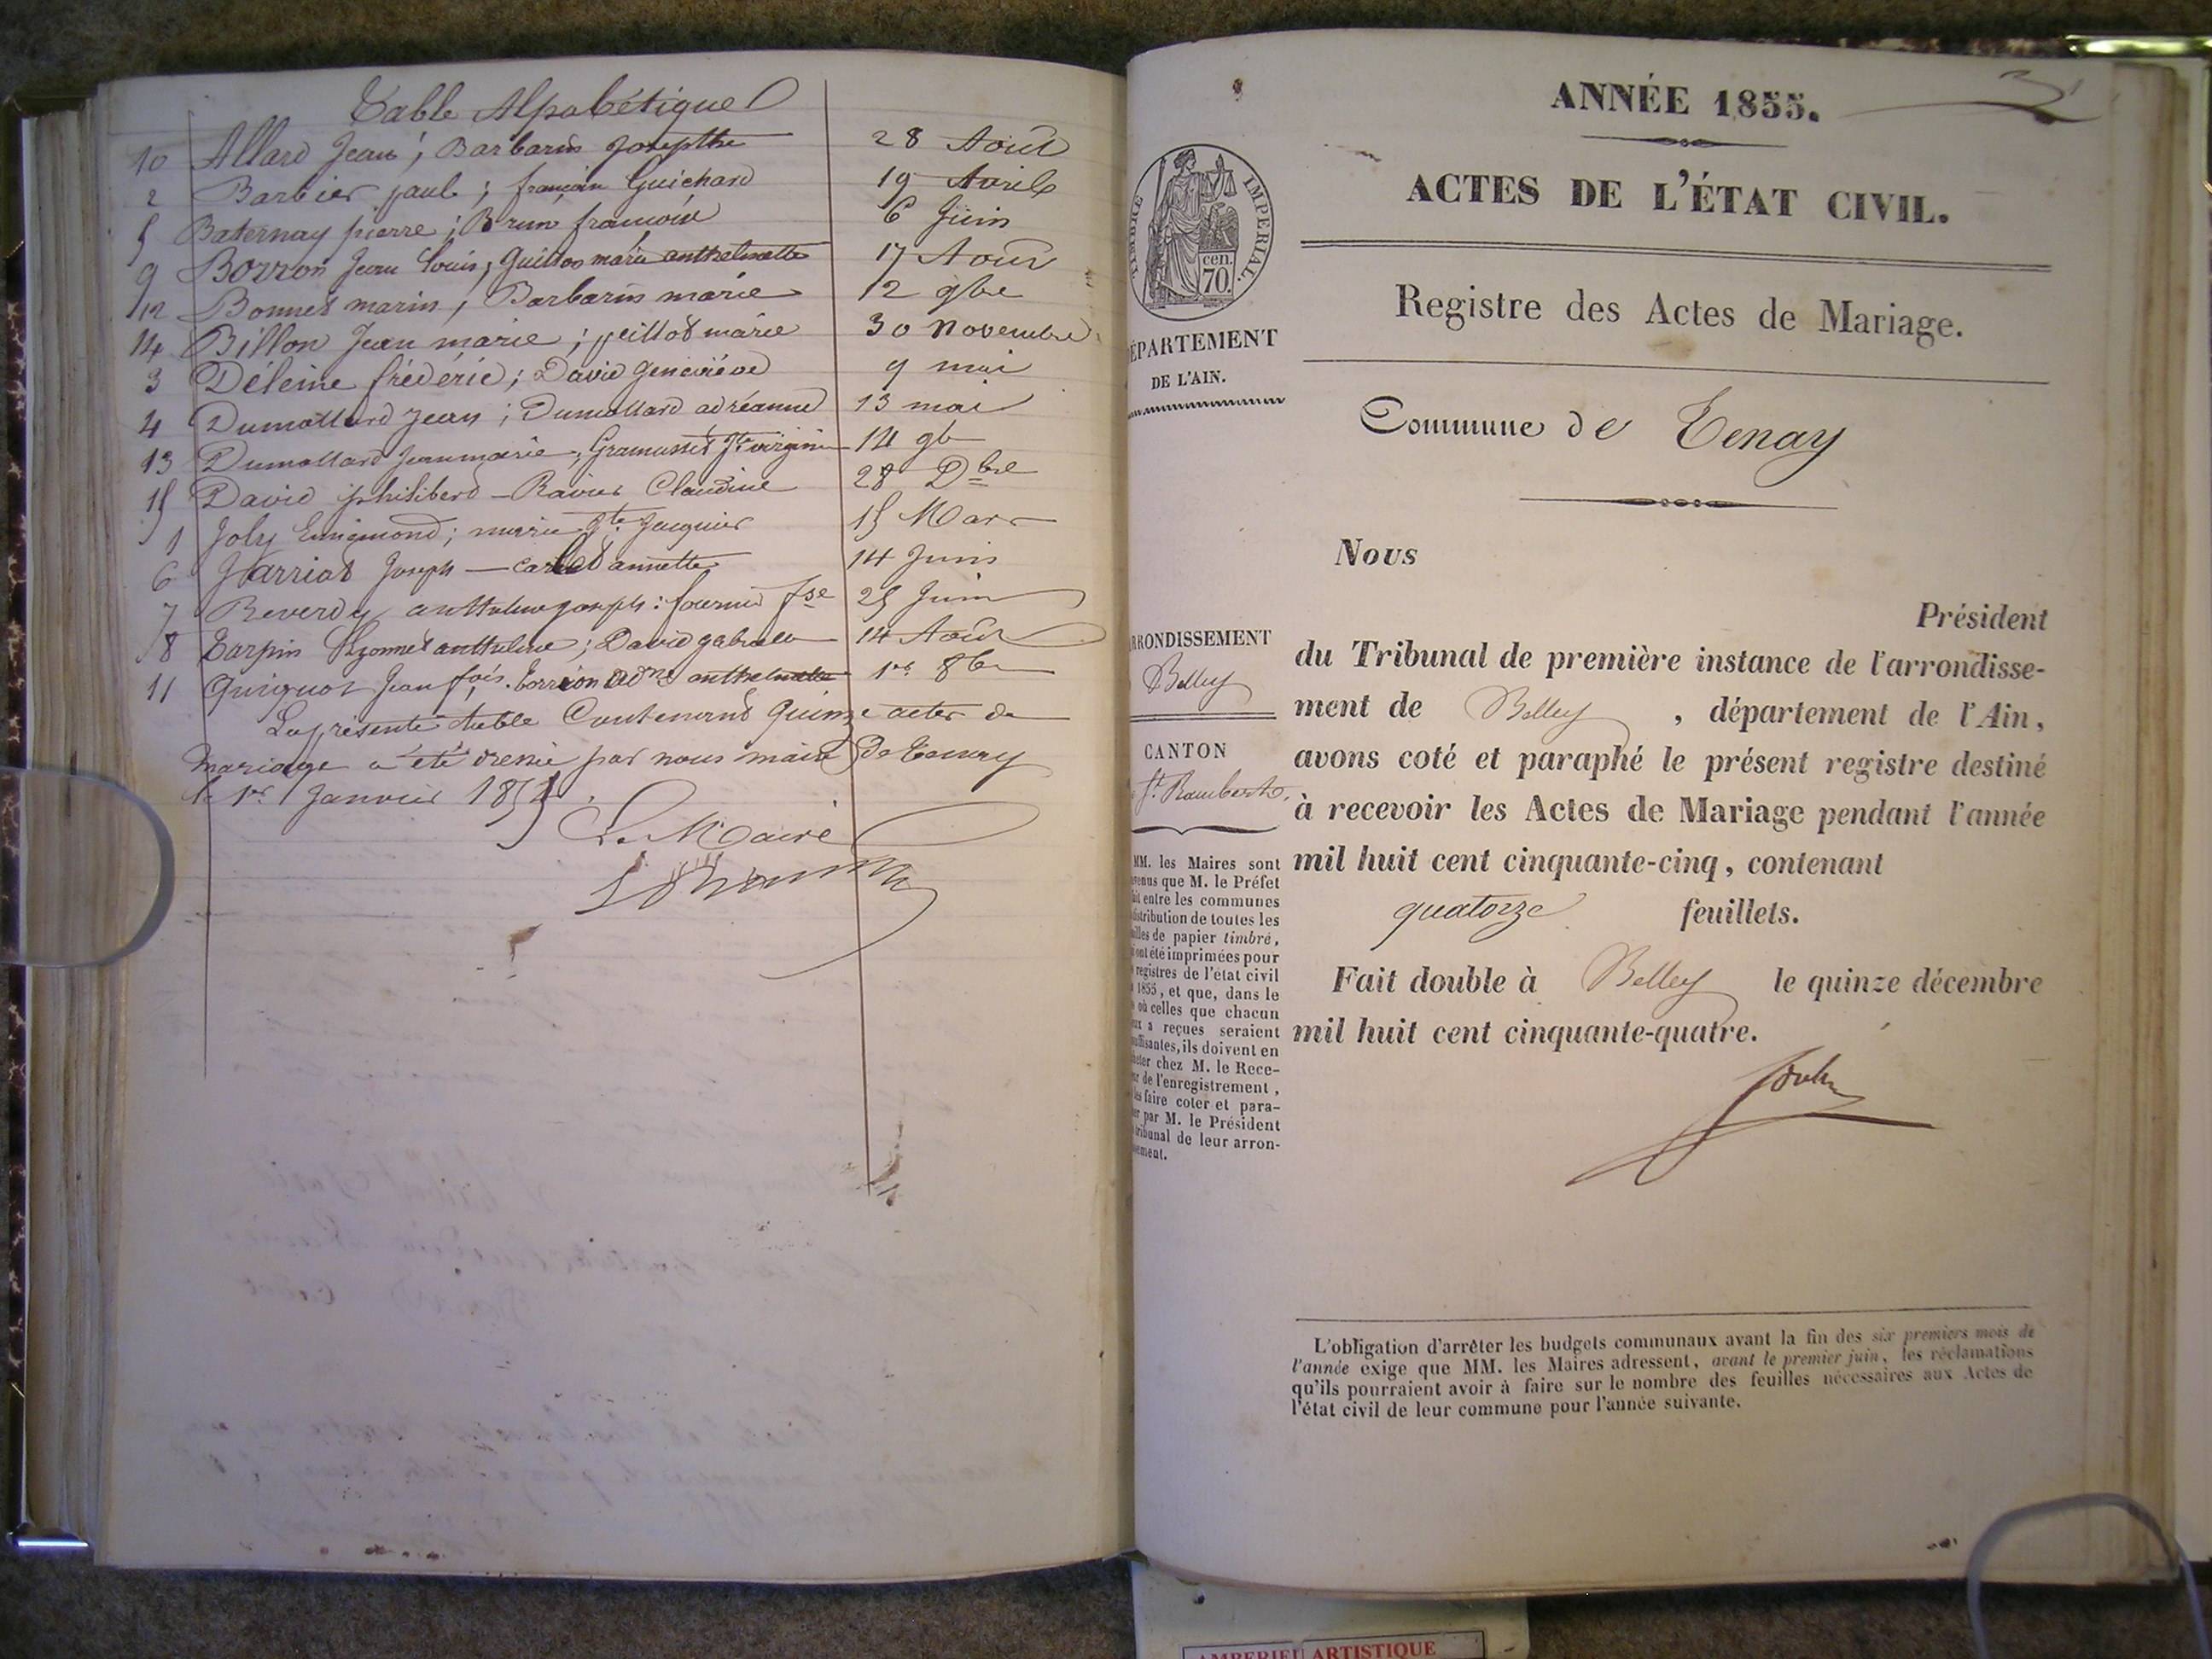 Table Alpabétique
10 Allard Jean; Barbarin Josepthe 28 Août
2 Barbier paul; françoise Guichard 19 Avril
5 Baternay pierre; Brun françoise 6 Juin
9 Borron Jean Louis; Guittos marie anthelmette 17 Août
12 Bonnet marin; Barbarin marie 12 9bre
14 Billon Jean marie; peillod marie 30 Novembre
3 Déleine frédéric; David geneviève 9 mai
4 Dumollard Jean; Dumollard adréanne 13 mai
13 Dumollard Jean marie; Gramusset Jte virginie 14 9b
15 David philiberd - Ravier Claudine 28 Dbre
1 Joly Ennemond; marie Jte Jacquier 15 Mars
6 Harriod Joseph - annette 14 Juin
7 Reverdy anthelme Joseph: fse 25 Juin
8 Tarpin Lyonnet anthelme; David 14 Août
11 Guiguot Jean fois. anthelmette 1er 8bre
La présente table Contenant Quinze actes de
mariage a été dressée par nous maire De Tenay
le 1er Janvier 1855.
Le Maire
ANNÉE 1855.
ACTES DE L'ÉTAT CIVIL.
TIMBRE IMPERIAL.
cen.
70.
Registre des Actes de Mariage.
ÉPARTEMENT
DE L'AIN.
Commune de Tenay
Nous
Président
RRONDISSEMENT
Belley
du Tribunal de première instance de l'arrondisse-
ment de Belley, département de l'Ain,
CANTON
St. Rambert
avons coté et paraphé le présent registre destiné
à recevoir les Actes de Mariage pendant l'année
mil huit cent cinquante-cinq, contenant
quatorze feuillets.
Fait double à Belley le quinze décembre
mil huit cent cinquante-quatre.
MM. les Maires sont
venus que M. le Préfet
ait entre les communes
distribution de toutes les
uilles de papier timbré,
ont été imprimées pour
registres de l'état civil
1855, et que, dans le
où celles que chacun
ux a reçues seraient
uffisantes, ils doivent en
heter chez M. le Rece-
ur de l'enregistrement,
les faire coter et para-
er par M. le Président
tribunal de leur arron-
sement.
L'obligation d'arrêter les budgets communaux avant la fin des six premiers mois de
l'année exige que MM. les Maires adressent, avant le premier juin, les réclamations
qu'ils pourraient avoir à faire sur le nombre des feuilles nécessaires aux Actes de
l'état civil de leur commune pour l'année suivante.
AMBERIEU ARTISTIQUE